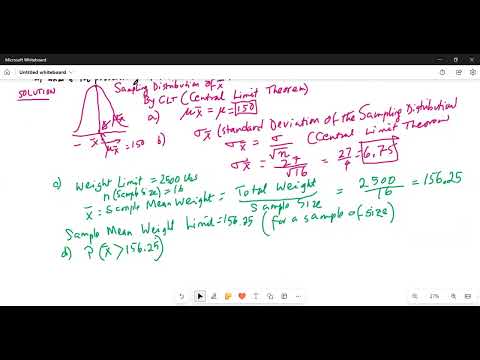 Microsoft Whiteboard
Untitled whiteboard
SOLUTION
Sampling Distribution of x̄
By CLT (Central Limit Theorem)
a) μx̄ = μ = 150
μx̄ = 150
b) σx̄ (Standard Deviation of the Sampling Distribution
σx̄ = σ/√n (Central Limit Theorem
σx̄ = 27/√16 = 27/4 = 6.75
c) Weight Limit = 2500 lbs
n (Sample Size) = 16
x̄ = Sample Mean Weight = Total Weight / Sample Size = 2500/16 = 156.25
Sample Mean Weight Limit = 156.25 (for a sample of size)
d) P(x̄ > 156.25)
27%